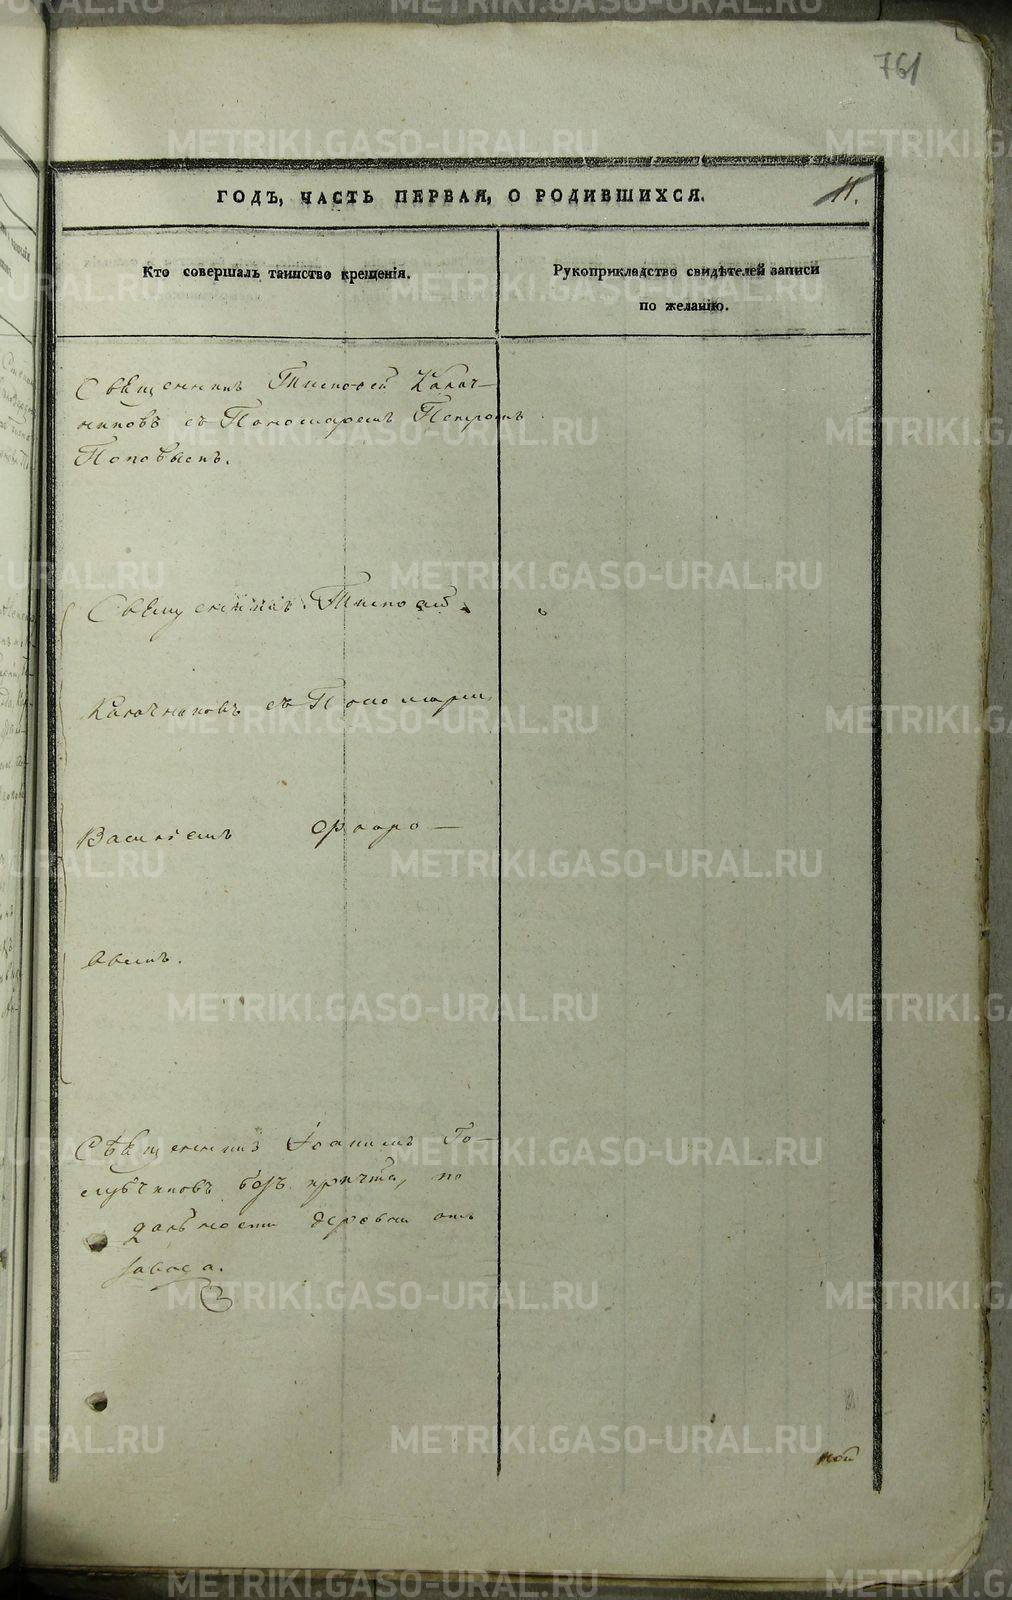 761
ГОДЪ, ЧАСТЬ ПЕРВАЯ, О РОДИВШИХСЯ.
11.
Кто совершалъ таинство крещенія.
Рукоприкладство свидѣтелей записи
по желанію.
Священникъ Тимофей Калач-
никовъ съ Пономаремъ Петромъ
Поповымъ.
Священникъ Тимофей
Калачниковъ съ Пономаремъ
Василіемъ
авымъ.
Священникъ Іоаннъ Го-
лубчиковъ безъ причта, по
дальности деревни отъ
завода.
ной
METRIKI.GASO-URAL.RU